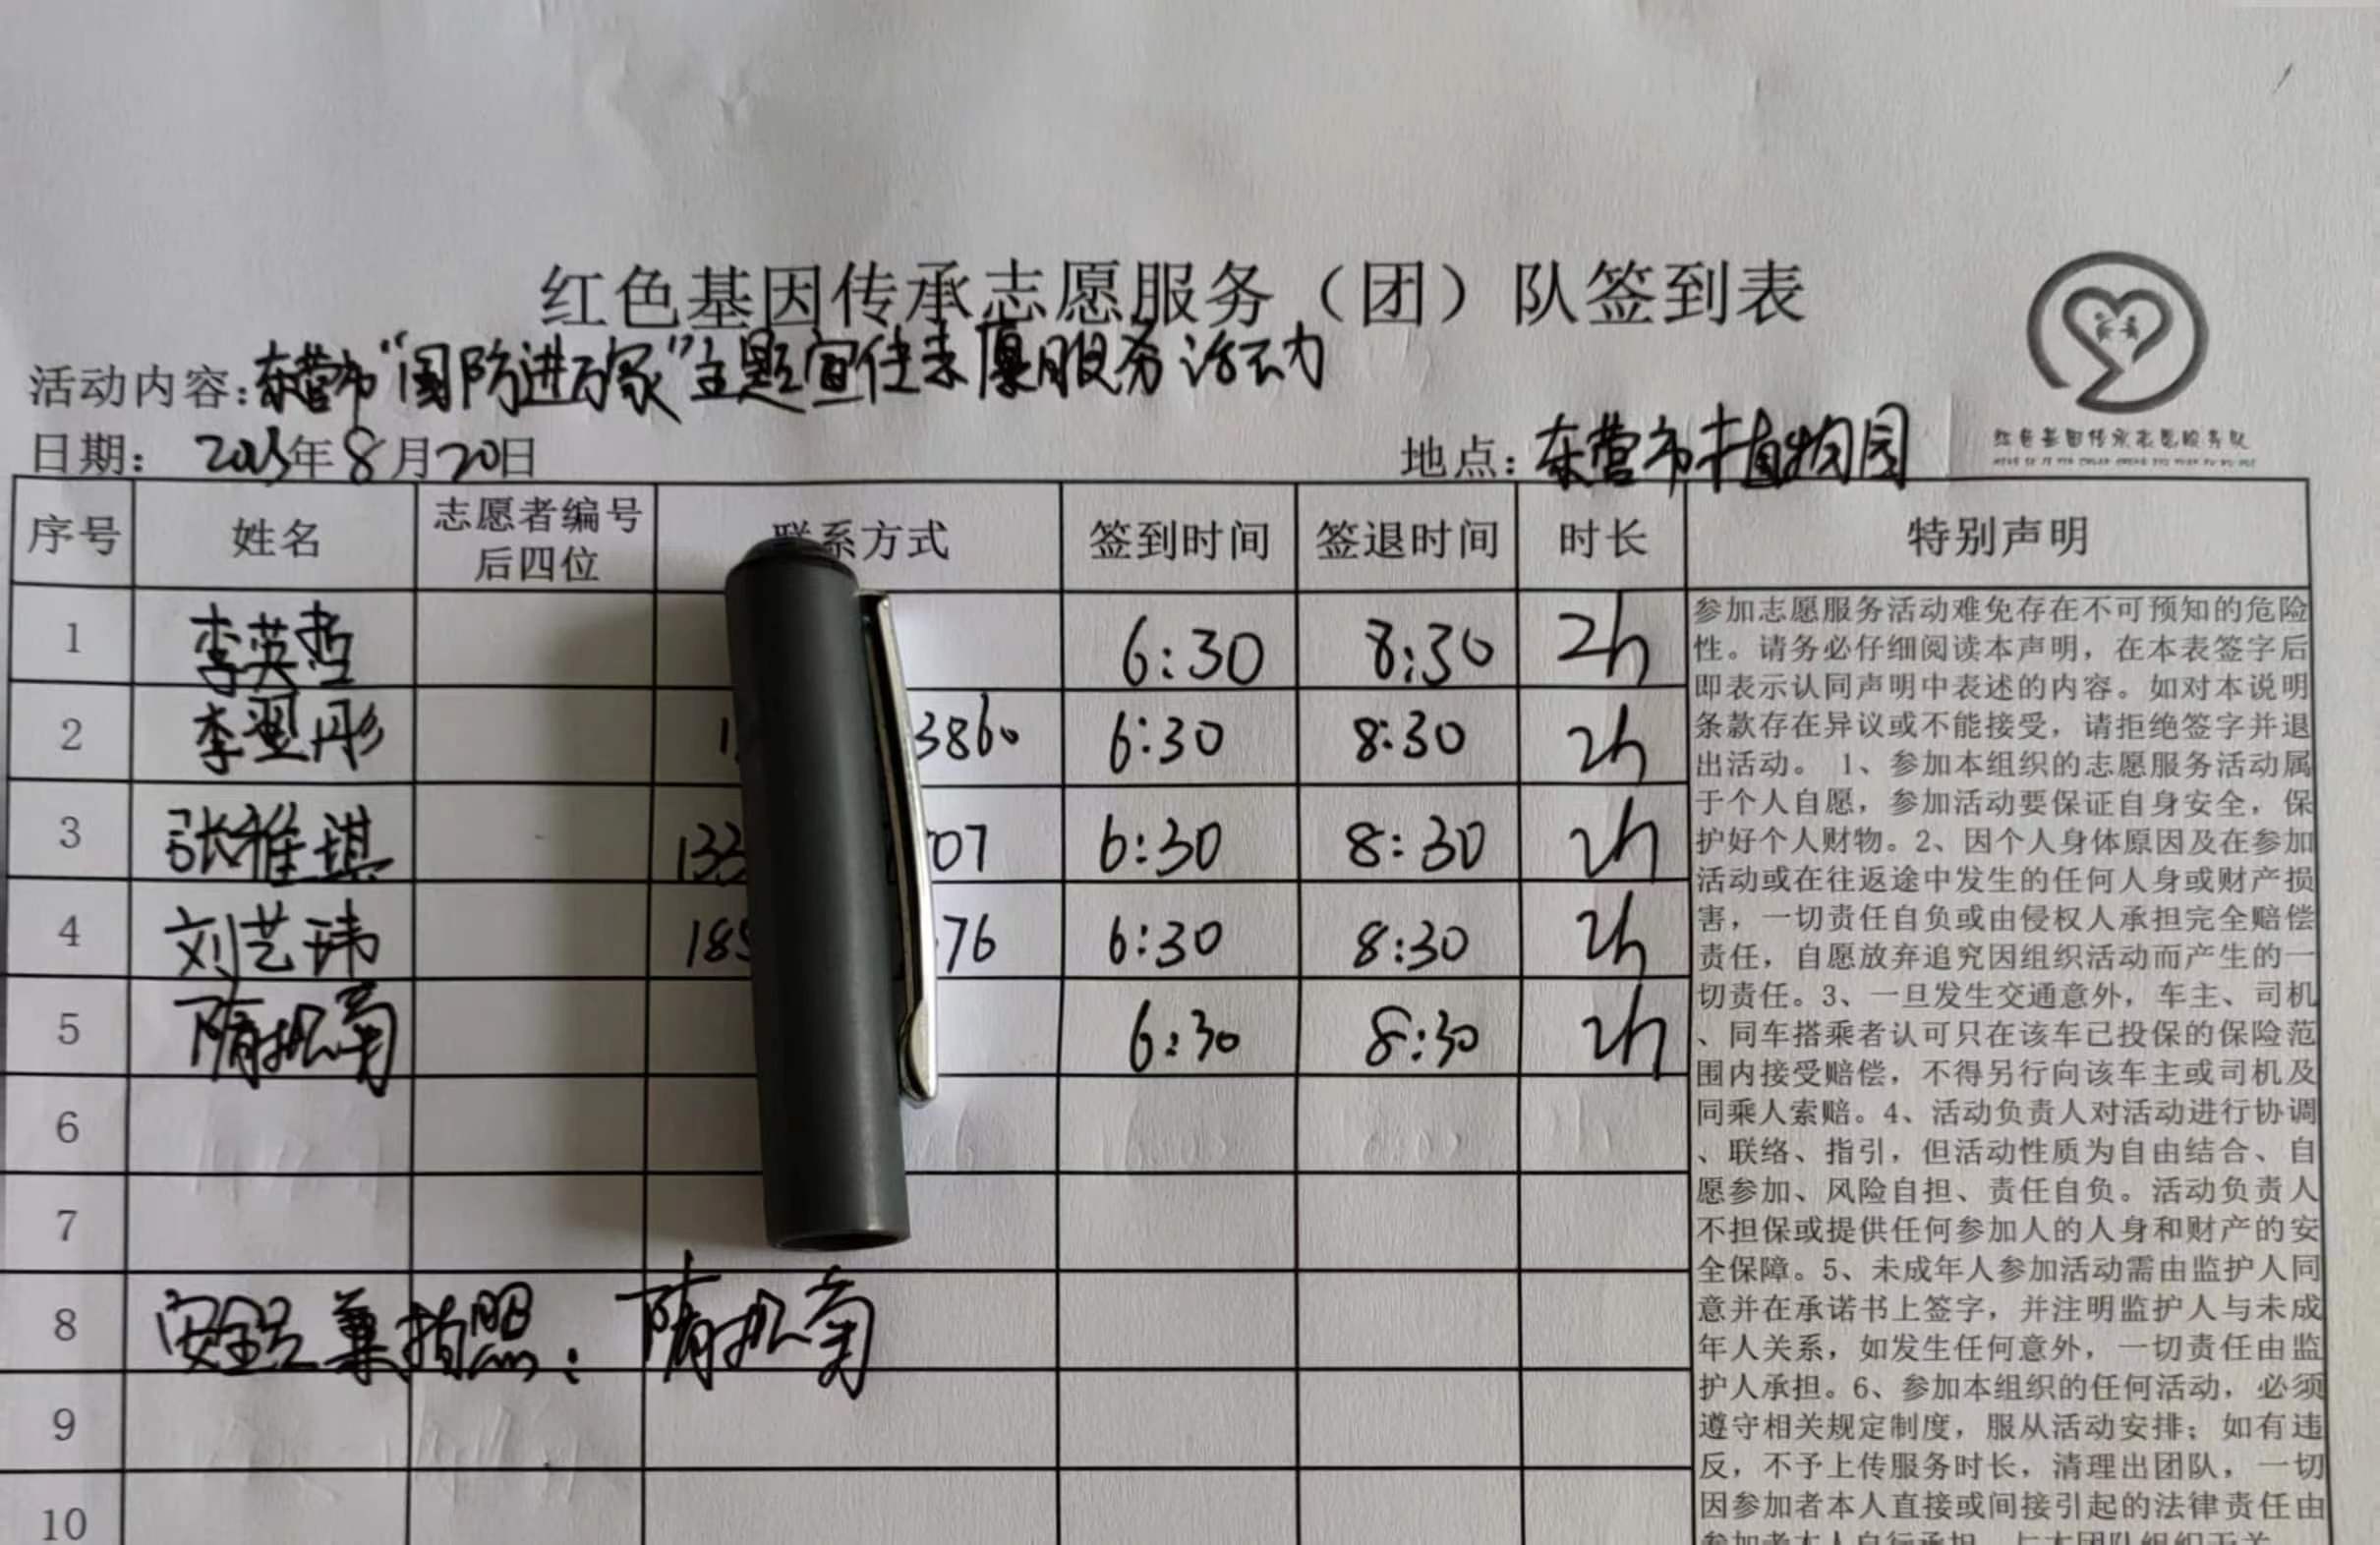 红色基因传承志愿服务（团）队签到表
活动内容：东营市“国防进万家”主题宣传志愿服务活动
日期： 2023年8月20日 地点：东营市植物园
红色基因传承志愿服务队
序号 姓名 志愿者编号后四位 联系方式 签到时间 签退时间 时长 特别声明
1 李英哲 6:30 8:30 2h
2 李翌彤 1 3860 6:30 8:30 2h
3 张雅琪 133 07 6:30 8:30 2h
4 刘艺玮 185 76 6:30 8:30 2h
5 隋 菊 6:30 8:30 2h
6
7
8 安全员兼拍照：隋 菊
9
10
参加志愿服务活动难免存在不可预知的危险
性。请务必仔细阅读本声明，在本表签字后
即表示认同声明中表述的内容。如对本说明
条款存在异议或不能接受，请拒绝签字并退
出活动。 1、参加本组织的志愿服务活动属
于个人自愿，参加活动要保证自身安全，保
护好个人财物。2、因个人身体原因及在参加
活动或在往返途中发生的任何人身或财产损
害，一切责任自负或由侵权人承担完全赔偿
责任，自愿放弃追究因组织活动而产生的一
切责任。3、一旦发生交通意外，车主、司机
、同车搭乘者认可只在该车已投保的保险范
围内接受赔偿，不得另行向该车主或司机及
同乘人索赔。4、活动负责人对活动进行协调
、联络、指引，但活动性质为自由结合、自
愿参加、风险自担、责任自负。活动负责人
不担保或提供任何参加人的人身和财产的安
全保障。5、未成年人参加活动需由监护人同
意并在承诺书上签字，并注明监护人与未成
年人关系，如发生任何意外，一切责任由监
护人承担。6、参加本组织的任何活动，必须
遵守相关规定制度，服从活动安排；如有违
反，不予上传服务时长，清理出团队，一切
因参加者本人直接或间接引起的法律责任由